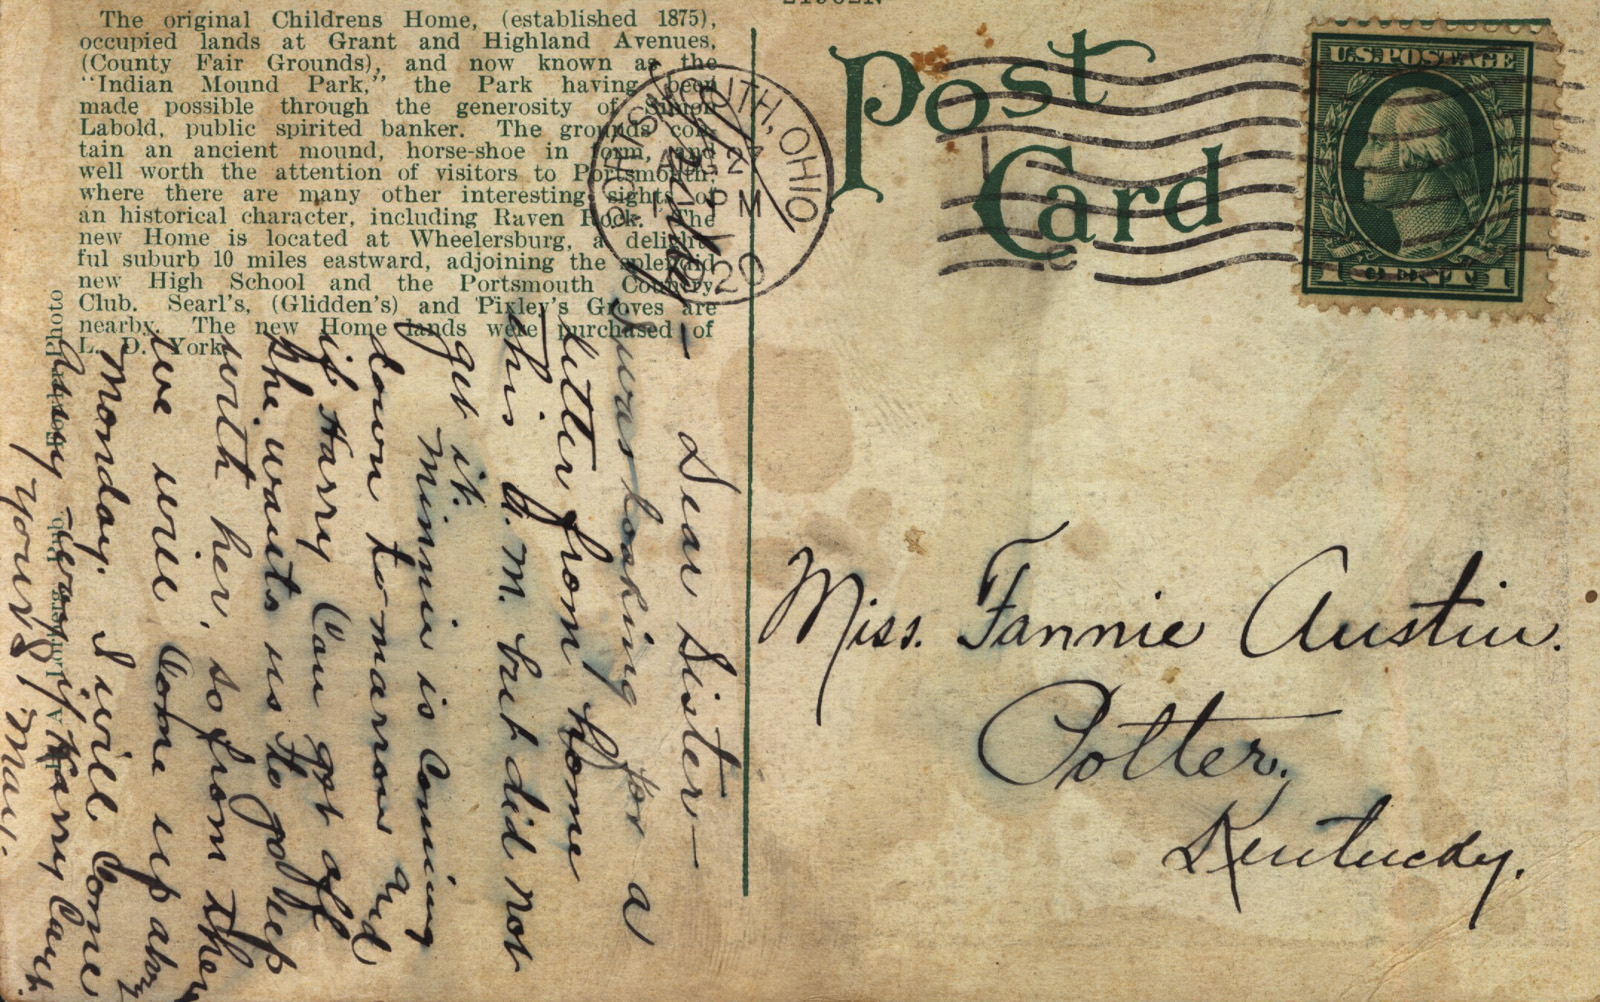 The original Childrens Home, (established 1875),
occupied lands at Grant and Highland Avenues,
(County Fair Grounds), and now known as the
“Indian Mound Park,” the Park having been
made possible through the generosity of Simon
Labold, public spirited banker. The grounds con-
tain an ancient mound, horse-shoe in form, and
well worth the attention of visitors to Portsmouth,
where there are many other interesting sights of
an historical character, including Raven Rock. The
new Home is located at Wheelersburg, a delight-
ful suburb 10 miles eastward, adjoining the splendid
new High School and the Portsmouth Country
Club. Searl's, (Glidden's) and Pixley's Groves are
nearby. The new Home lands were purchased of
L. D. York.
Photo
Pub
Post
Card
PORTSMOUTH, OHIO
AUG 27
PM
1920
U.S. POSTAGE
1 CENT 1
Dear Sister—
I was looking for a
letter from home
this A. M. but did not
get it.
Minnie is coming
down tomarrow and
if Harry can get off
she wants us to go up
with her, so from there
we will come up
Monday. I will come
any way if Harry can't.
Yours,
May.
Miss. Fannie Austin.
Potter,
Kentucky.